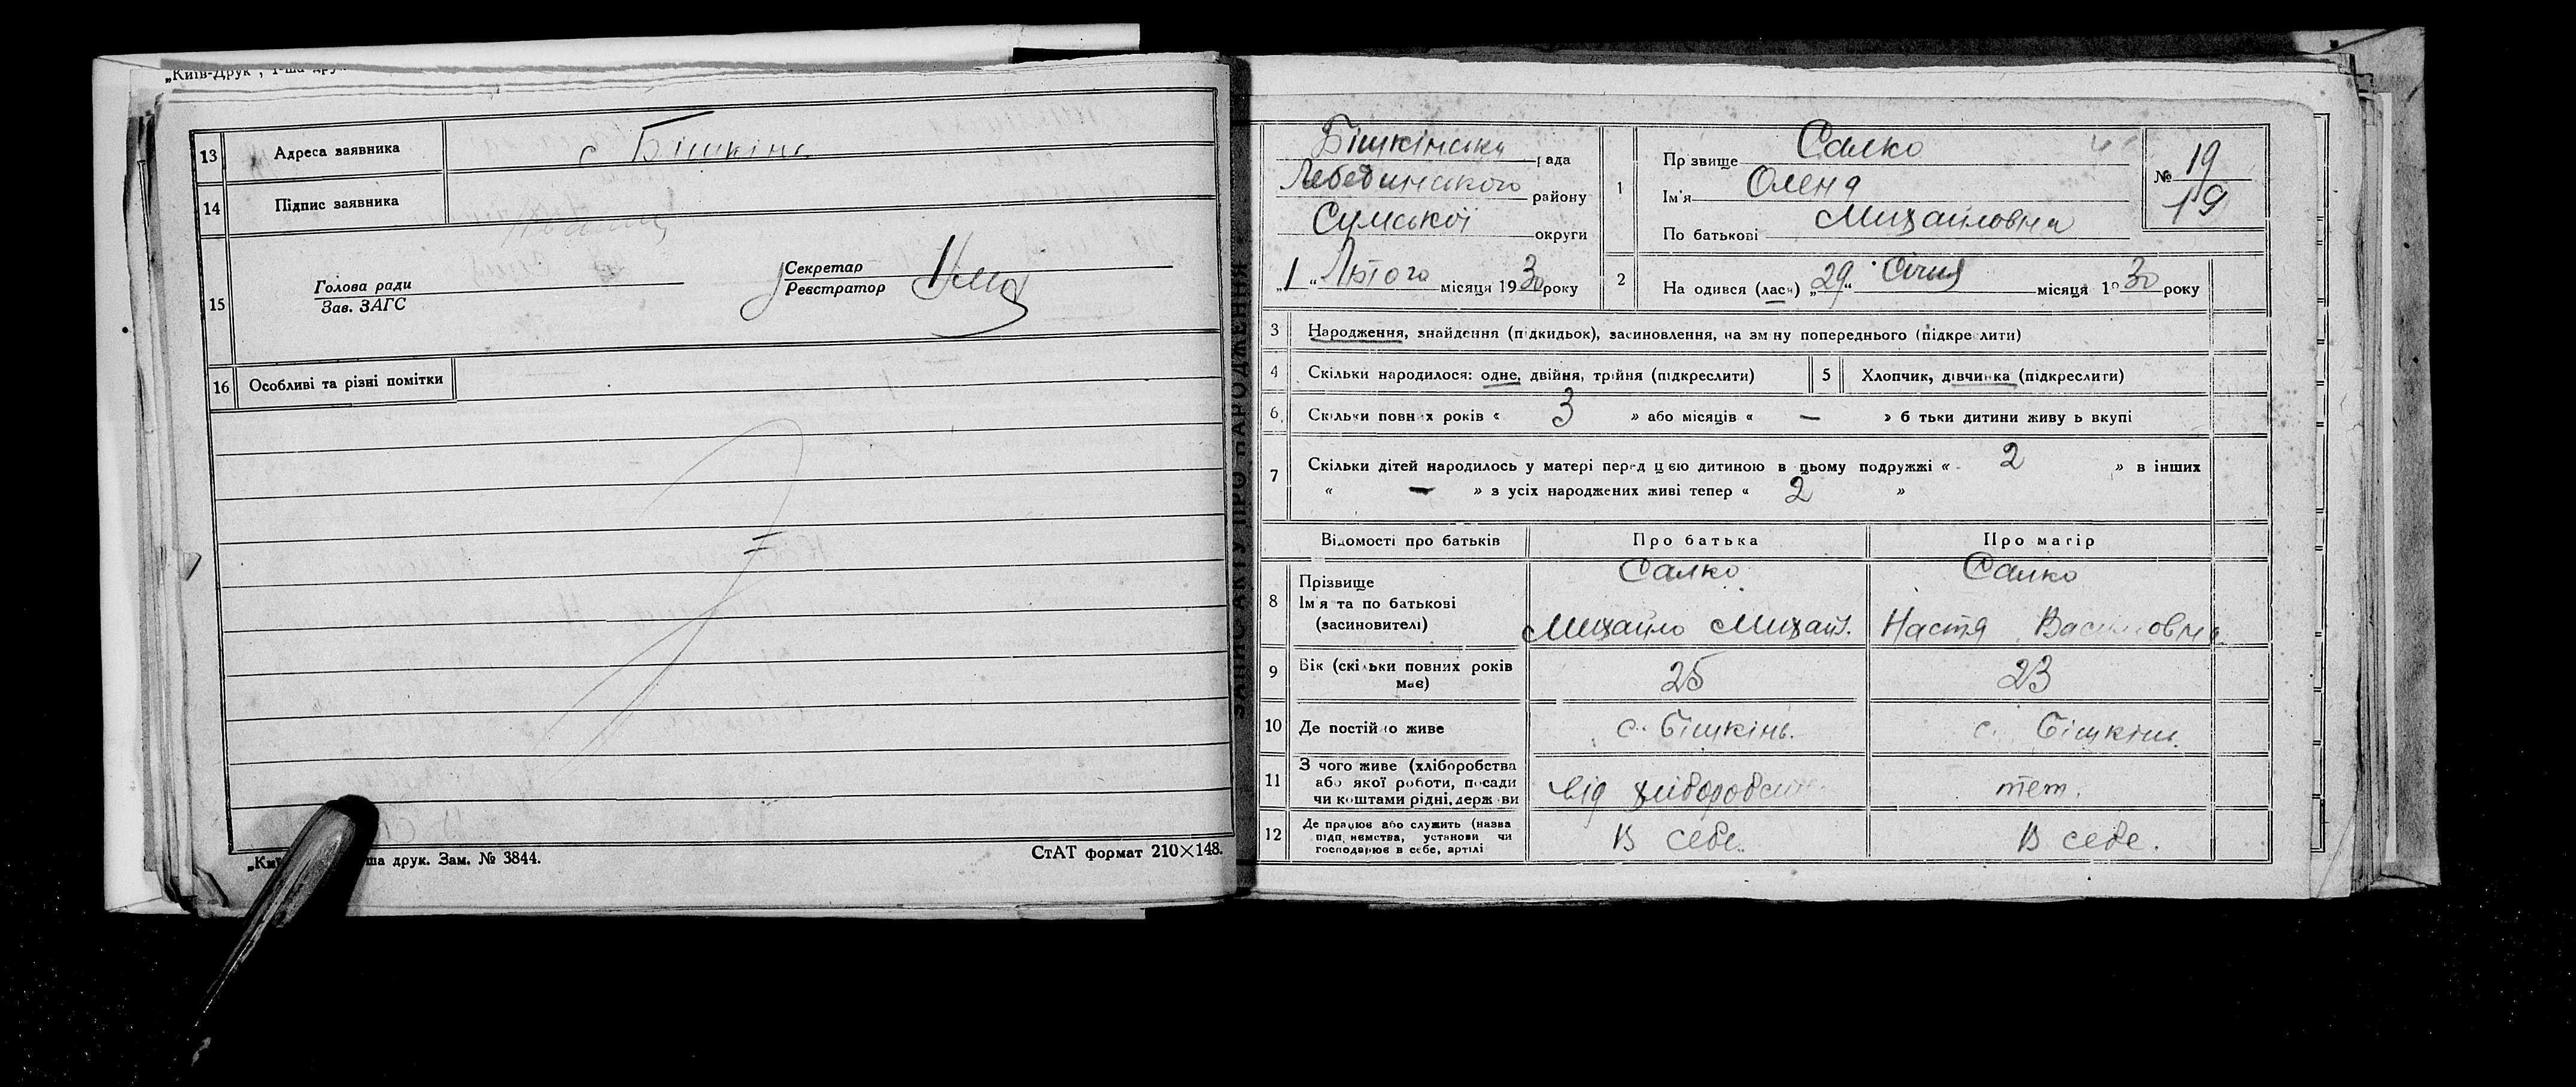 „Київ-Друк",
13 Адреса заявника с Бішкінь
14 Підпис заявника
15 Голова ради
Зав. ЗАГС
Секретар
Реєстратор
16 Особливі та різні помітки
ша друк. Зам. № 3844.
СтАТ формат 210×148.
ЗАПИС АКТУ ПРО НАРОДЖЕННЯ
Бішкінська рада
Лебединського району
Сумської округи
„1" Лютого місяця 1930 року
1 Прізвище Салко
Ім'я Олена
По батькові Михайловна
№ 19
19
2 Народився (лась) „29" Січня місяця 1930 року
3 Народження, знайдення (підкидьок), засиновлення, на зміну попереднього (підкреслити)
4 Скільки народилося: одне, двійня, трійня (підкреслити)
5 Хлопчик, дівчинка (підкреслити)
6 Скільки повних років « 3 » або місяців « — » б тьки дитини живу ь вкупі
7 Скільки дітей народилось у матері перед цією дитиною в цьому подружжі « 2 » в інших
« — » з усіх народжених живі тепер « 2 »
Відомості про батьків Про батька Про матір
8 Прізвище Салко Салко
Ім'я та по батькові
(засиновителі) Михайло Михайл. Настя Василовна
9 Вік (скільки повних років має) 25 23
10 Де постійно живе с. Бішкінь. с. Бішкінь.
11 З чого живе (хліборобства
або якої роботи, посади
чи коштами рідні, держави від хліборобства теж.
12 Де працює або служить (назва
підприємства, установи чи
господарює в себе, артілі В себе. В себе.